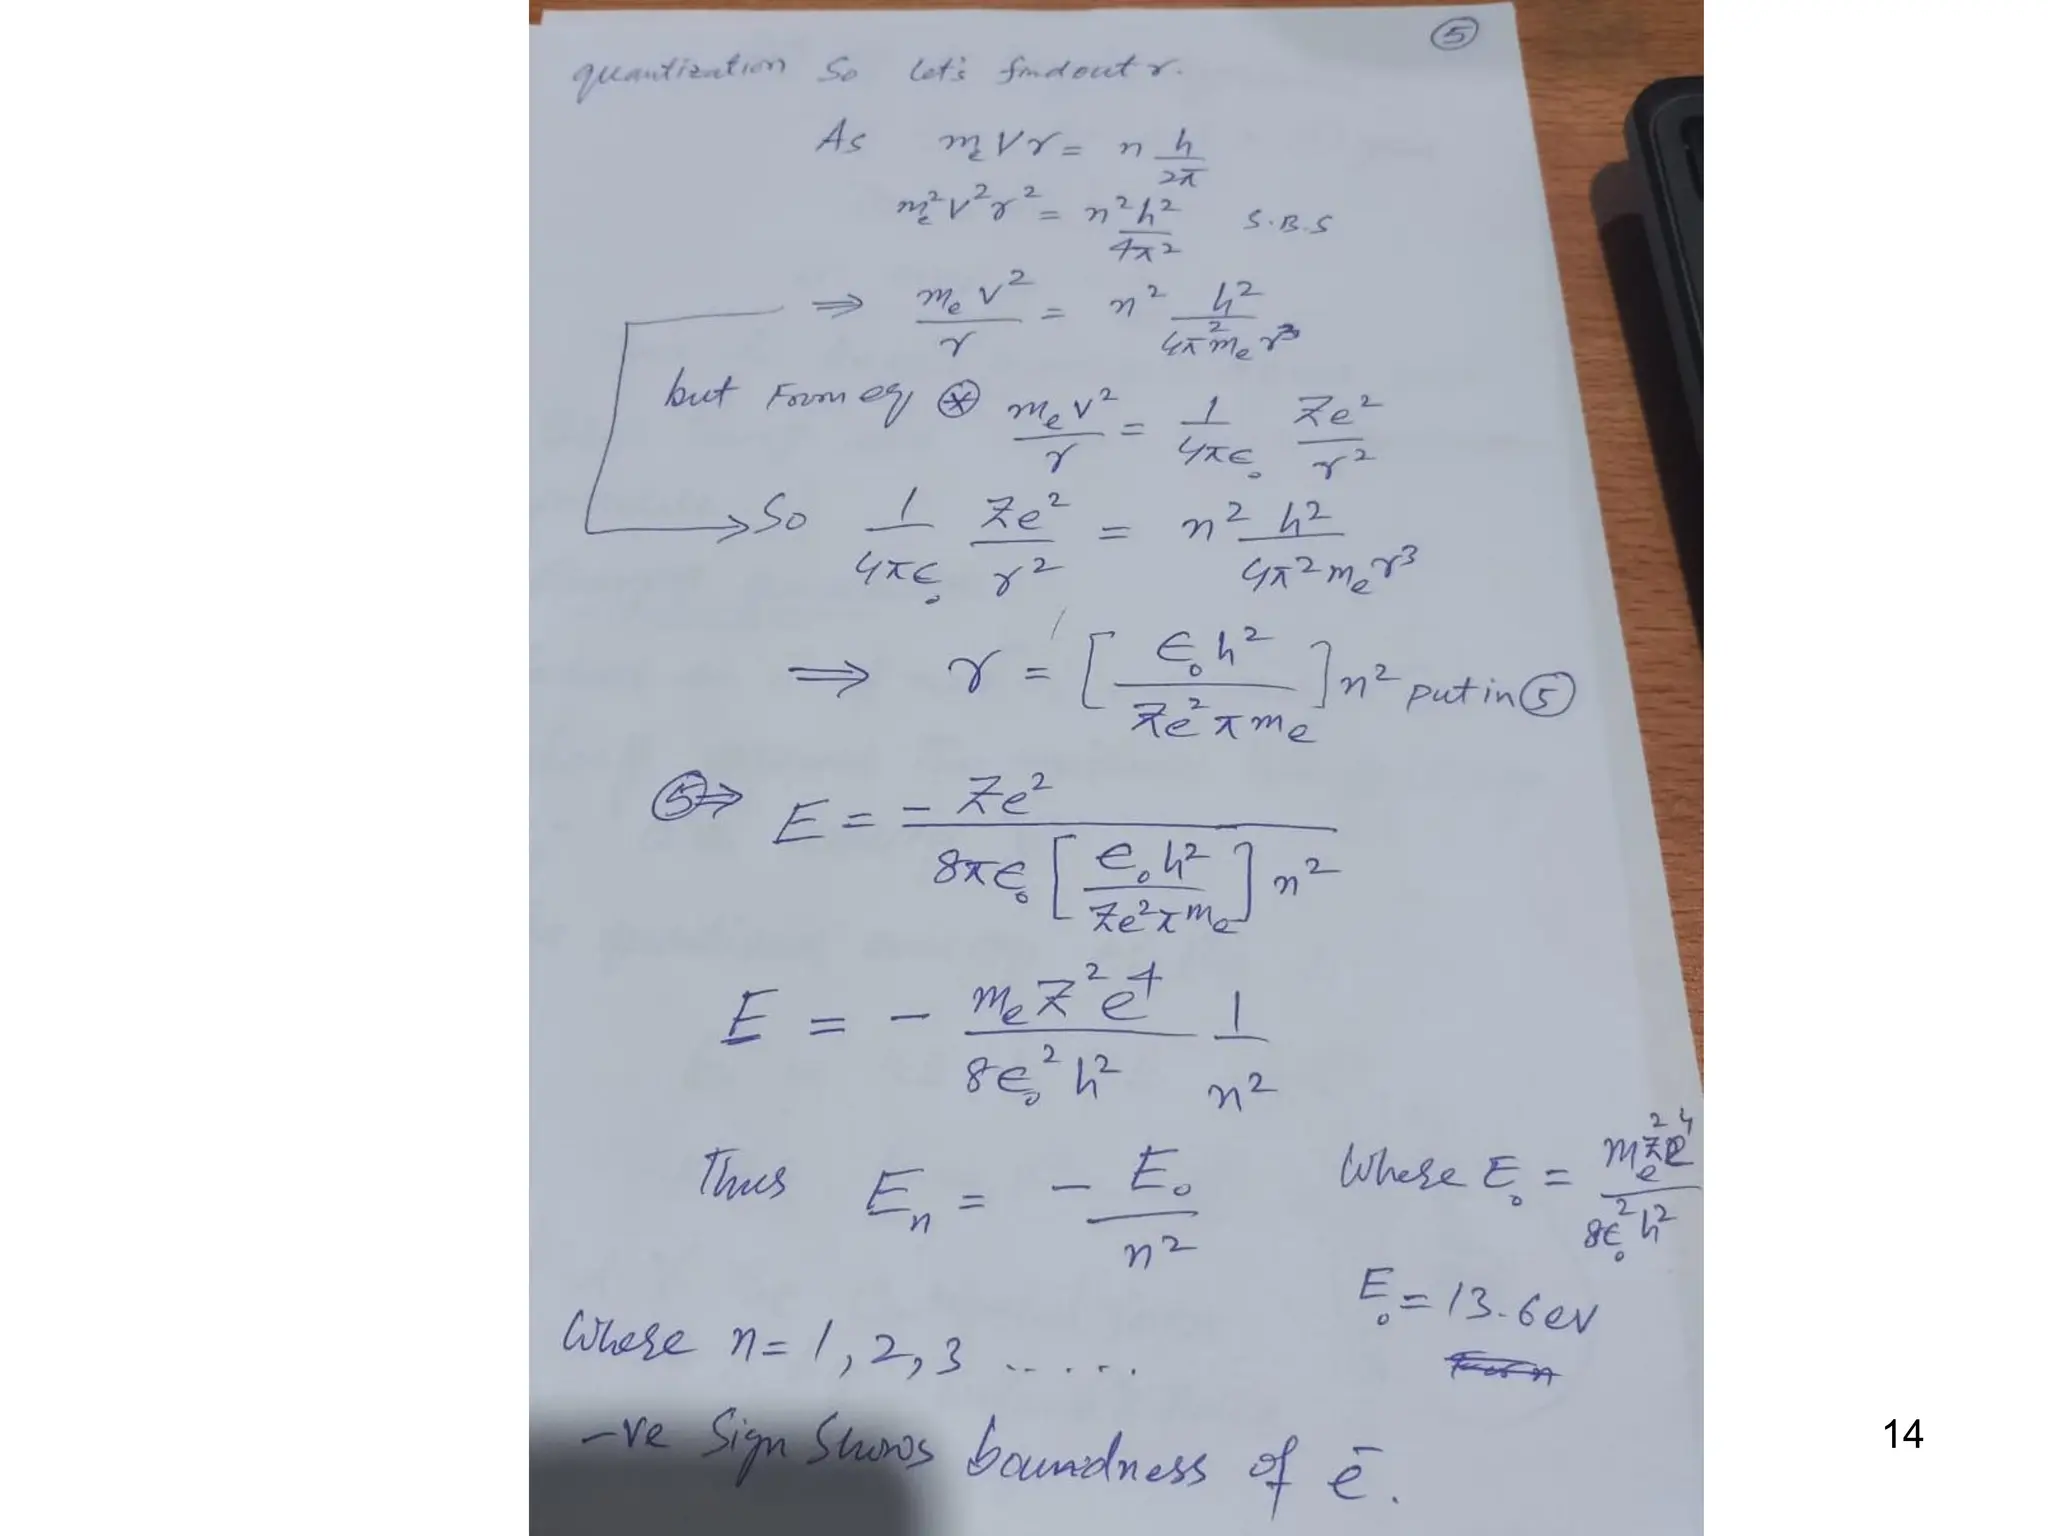 ⑤
quantization So Let's findout r.
As mₑvr = n h/2π
mₑ²v²r² = n²h²/4π² S.B.S
⇒ mₑv²/r = n² h²/4π²mₑr³
but From eq ⊛ mₑv²/r = 1/4πϵ₀ Ze²/r²
So 1/4πϵ₀ Ze²/r² = n² h²/4π²mₑr³
⇒ r = [ϵ₀h²/Ze²πmₑ] n² put in ⑤
⑤⇒ E = -Ze²/8πϵ₀[ϵ₀h²/Ze²πmₑ]n²
E = - mₑZ²e⁴/8ϵ₀²h² 1/n²
Thus Eₙ = - E₀/n² Where E₀ = mₑZ²e⁴/8ϵ₀²h²
E₀ = 13.6eV
Where n = 1, 2, 3 ......
-ve Sign Shows boundness of e⁻.
14